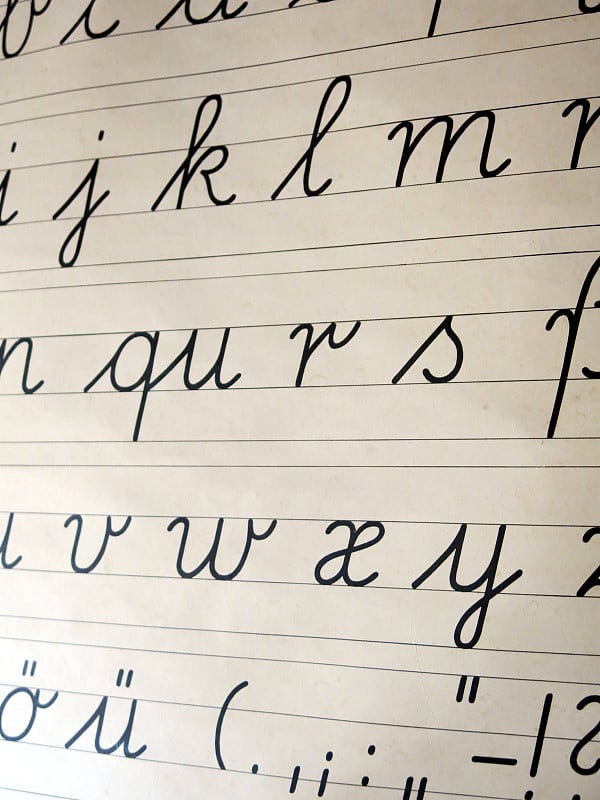 i j k l m n
qu r s ß
u v w x y z
ö ü ( . , ; : „ " - ! ?